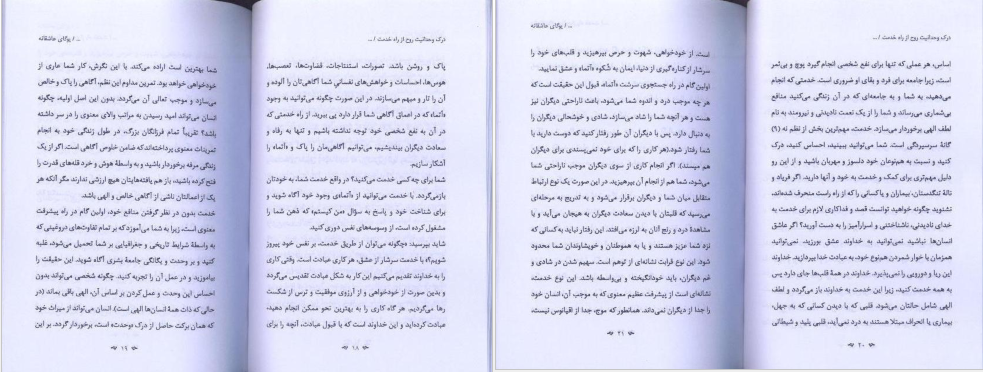 درک وحدانیت روح از راه خدمت / ...
پاک و روشن باشد. تصورات، استنتاجات، قضاوت‌ها، تعصب‌ها،
هوس‌ها، احساسات و خواهش‌های نفسانی شما آگاهی‌تان را آلوده و
آن را تار و مبهم می‌سازند. در این صورت چگونه می‌توانید به وجود
«آتما» که در اعماق آگاهی شما قرار دارد پی ببرید. از راه خدمتی که
در آن به نفع شخصی خود توجه نداشته باشیم و تنها به رفاه و
سعادت دیگران بیندیشیم، می‌توانیم آگاهی‌مان را پاک و «آتما» را
آشکار سازیم.
شما برای چه کسی خدمت می‌کنید؟ در واقع خدمت شما، به خودتان
بازمی‌گردد. با خدمت می‌توانید از «آتما»ی وجود خود آگاه شوید و
برای شناخت خود و پاسخ به سؤال «من کیستم» که ذهن شما را
مشغول کرده است، از وسوسه‌های نفس دوری کنید.
شاید بپرسید: «چگونه می‌توان از طریق خدمت، بر نفس خود پیروز
شویم؟» با خدمت سرشار از عشق، هر کاری عبادت است. وقتی کاری
را به خداوند تقدیم می‌کنیم این کار به شکل عبادت تقدیس می‌گردد
و بدین صورت از خودخواهی و از آرزوی موفقیت و ترس از شکست
رها می‌گردیم. هر گاه کاری را به بهترین نحو ممکن انجام دهید،
عبادت کرده‌اید و این خداوند است که با قبول عبادت، آنچه را برای
۱۸
... / یوگای عاشقانه
شما بهترین است اراده می‌کند. با این نگرش، کار شما عاری از
خودخواهی خواهد بود. تمرین مداوم این نظم، آگاهی را پاک و خالص
می‌سازد و موجب تعالی آن می‌گردد. بدون این اصل اولیه، چگونه
انسان می‌تواند امید رسیدن به مراتب والای معنوی را در سر داشته
باشد؟ تقریباً تمام فرزانگان بزرگ، در طول زندگی خود به انجام
تمرینات معنوی پرداخته‌اند که ضامن خلوص آگاهی است. اگر از یک
زندگی مرفه برخوردار باشید و به واسطهٔ هوش و خرد قله‌های قدرت را
فتح کرده باشید، باز هم یافته‌هایتان هیچ ارزشی ندارند مگر آنکه هر
یک از اعمالتان ناشی از آگاهی خالص و الهی باشد.
خدمت بدون در نظر گرفتن منافع خود، اولین گام در راه پیشرفت
معنوی است، زیرا به شما می‌آموزد که بر تمام تفاوت‌های دروغینی که
به واسطهٔ شرایط تاریخی و جغرافیایی بر شما تحمیل می‌شود، غلبه
کنید و بر وحدت و یگانگی جامعهٔ بشری آگاه شوید. این حقیقت را
بیاموزید و در عمل آن را تجربه کنید. چگونه شخصی می‌تواند بدون
احساس این وحدت و عمل کردن بر اساس آن، الهی باقی بماند (در
حالی که ذات همهٔ انسان‌ها الهی است). انسان می‌تواند از میراث خود
که همان برکت حاصل از درک وحدت است، برخوردار گردد. بر این
۱۹
درک وحدانیت روح از راه خدمت / ...
اساس، هر عملی که تنها برای نفع شخصی انجام گیرد پوچ و بی‌ثمر
است، زیرا جامعه برای فرد و بقای او ضروری است. خدمتی که انجام
می‌دهید، به شما و به جامعه‌ای که در آن زندگی می‌کنید منافع
بی‌شماری می‌رساند و شما را از یک نعمت نادیدنی و نیرومند به نام
لطف الهی برخوردار می‌سازد. خدمت، مهم‌ترین بخش از نظم نه (۹)
گانهٔ سرسپردگی است. شما می‌توانید ببینید، احساس کنید، درک
کنید و نسبت به هم‌نوعان خود دلسوز و مهربان باشید و از این رو
دلیل مهم‌تری برای کمک و خدمت به خود و آنها دارید. اگر فریاد و
نالهٔ تنگدستان، بیماران و یا کسانی را که از راه راست منحرف شده‌اند،
نشنوید چگونه خواهید توانست قصد و فداکاری لازم برای خدمت به
خدای نادیدنی، ناشناختنی و اسرارآمیز را به دست آورید؟ اگر عاشق
انسان‌ها نباشید نمی‌توانید به خداوند عشق بورزید. نمی‌توانید
همزمان با خوار شمردن همنوع خود، به عبادت خدا بپردازید. خداوند
این ریا و دورویی را نمی‌پذیرد. خداوند در همهٔ قلب‌ها جای دارد پس
به همه خدمت کنید، زیرا این خدمت به خداوند باز می‌گردد و لطف
الهی شامل حالتان می‌شود. قلبی که با دیدن کسانی که به جهل،
بیماری یا انحراف مبتلا هستند به درد نمی‌آید، قلبی پلید و شیطانی
۲۰
... / یوگای عاشقانه
است. از خودخواهی، شهوت و حرص بپرهیزید و قلب‌های خود را
سرشار از کناره‌گیری از دنیا، ایمان به شکوه «آتما» و عشق نمایید.
اولین گام در راه جستجوی سرشت «آتما»، قبول این حقیقت است که
هر چه موجب درد و اندوه شما می‌شود، باعث ناراحتی دیگران نیز
هست و هر آنچه شما را شاد می‌سازد، شادی و خوشحالی دیگران را
به دنبال دارد. پس با دیگران آن طور رفتار کنید که دوست دارید با
شما رفتار شود. (هر کاری را که برای خود نمی‌پسندی برای دیگران
هم مپسند). اگر انجام کاری از سوی دیگران موجب ناراحتی شما
می‌شود، شما هم از انجام آن بپرهیزید. در این صورت یک نوع ارتباط
متقابل میان شما و دیگران برقرار می‌شود و به تدریج به مرحله‌ای
می‌رسید که قلبتان با دیدن سعادت دیگران به هیجان می‌آید و با
مشاهدهٔ درد و رنج آنان به لرزه می‌افتد. این رفتار نباید به کسانی که
نزد شما عزیز هستند و یا به هموطنان و خویشاوندان شما محدود
شود. این نوع قرابت نشانه‌ای از توهم است. سهیم شدن در شادی و
غم دیگران، باید خودانگیخته و بی‌واسطه باشد. این نوع خدمت،
نشانه‌ای است از پیشرفت عظیم معنوی که به موجب آن، انسان خود
را جدا از دیگران نمی‌داند. همانطور که موج، جدا از اقیانوس نیست،
۲۱